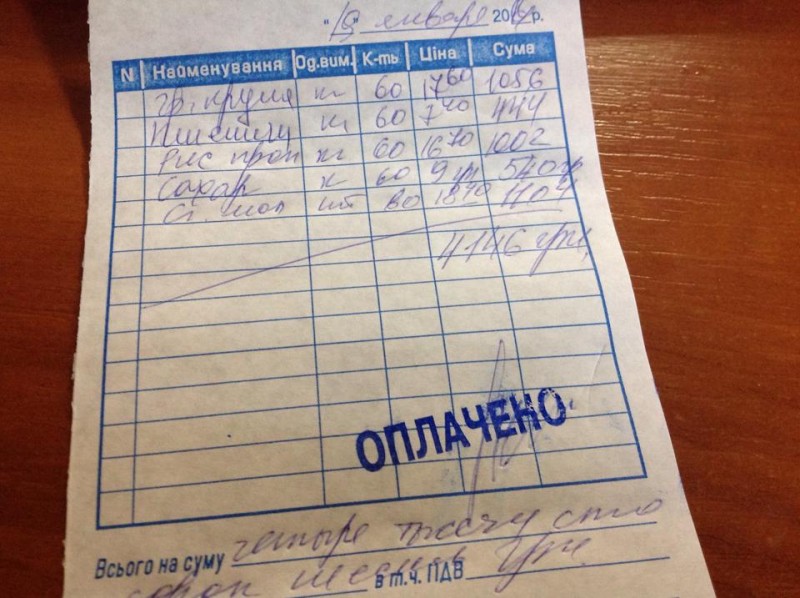 "19" января 20 р.
N Найменування Од.вим. К-ть Ціна Сума
гр. крупа кг 60 17 60 1056
Пшеничн кг 60 7 40 444
Рис проп кг 60 16 70 1002
Сахар к 60 9 гр 540 гр
Сг. мол шт 60 18 40 1104
4146 грн,
ОПЛАЧЕНО
Всього на суму четыре тысячи сто
сорок шесть в т.ч. ПДВ грн.